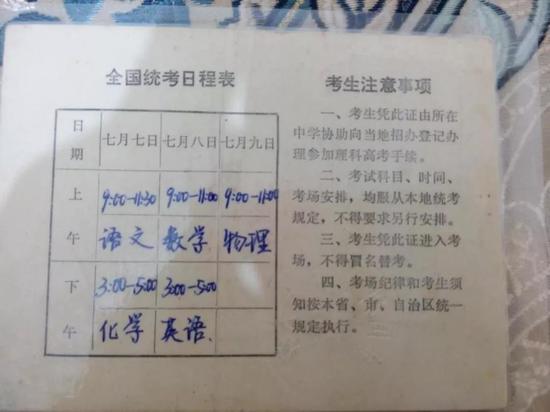 全国统考日程表
日期 七月七日 七月八日 七月九日
上午 9:00-11:30 9:00-11:00 9:00-11:00
语文 数学 物理
下午 3:00-5:00 3:00-5:00
化学 英语.
考生注意事项
一、考生凭此证由所在
中学协助向当地招办登记办
理参加理科高考手续。
二、考试科目、时间、
考场安排，均服从本地统考
规定，不得要求另行安排。
三、考生凭此证进入考
场，不得冒名替考。
四、考场纪律和考生须
知按本省、市、自治区统一
规定执行。